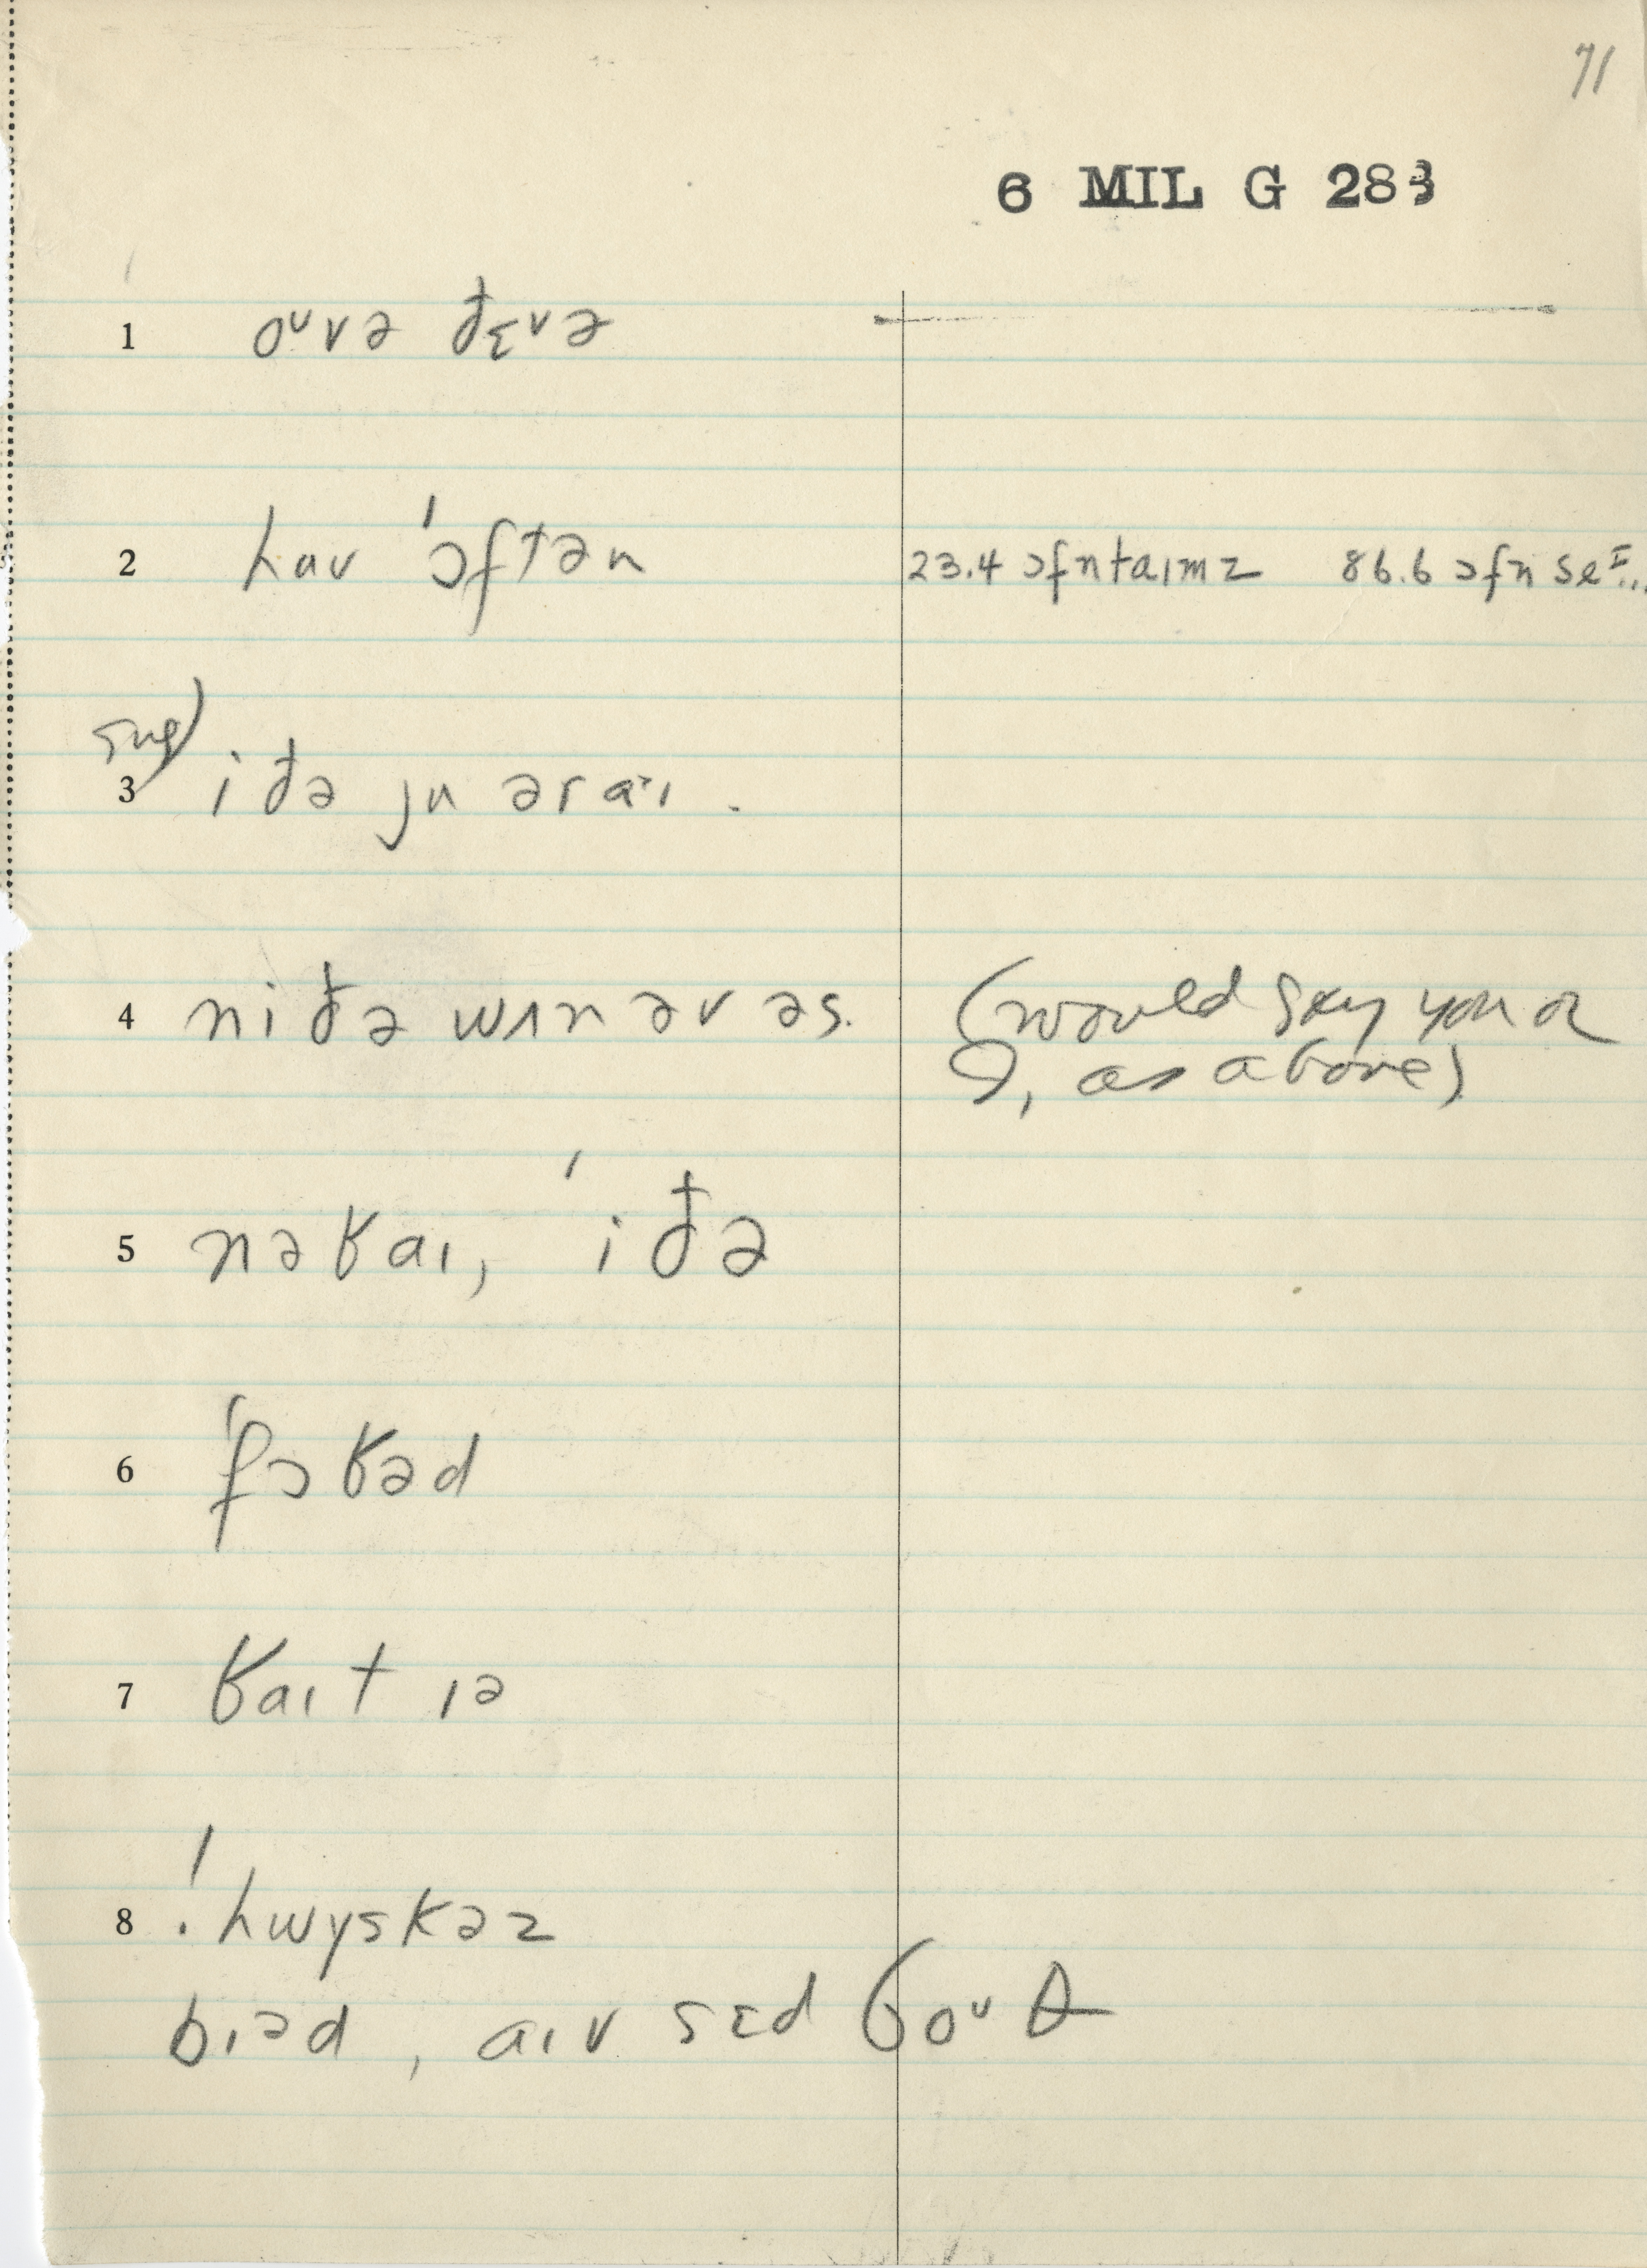 71
6 MIL G 283
1 oᵘvə ðɛvə
2 haʊ ˈɔftən 23.4 ɔfn taɪmz 86.6 ɔfn seᴵ...
sug)
3 i ðə ju ər aˑɪ .
4 ni ðə wʌn əv əs. (would say you or
I, as above)
5 nəʁaɪ, ˈi ðə
6 ˈfɔʁəd
7 ʁaɪt ɪə
8 ˈ. hwyskəz
bɪəd , aɪv sɛd boᵘθ